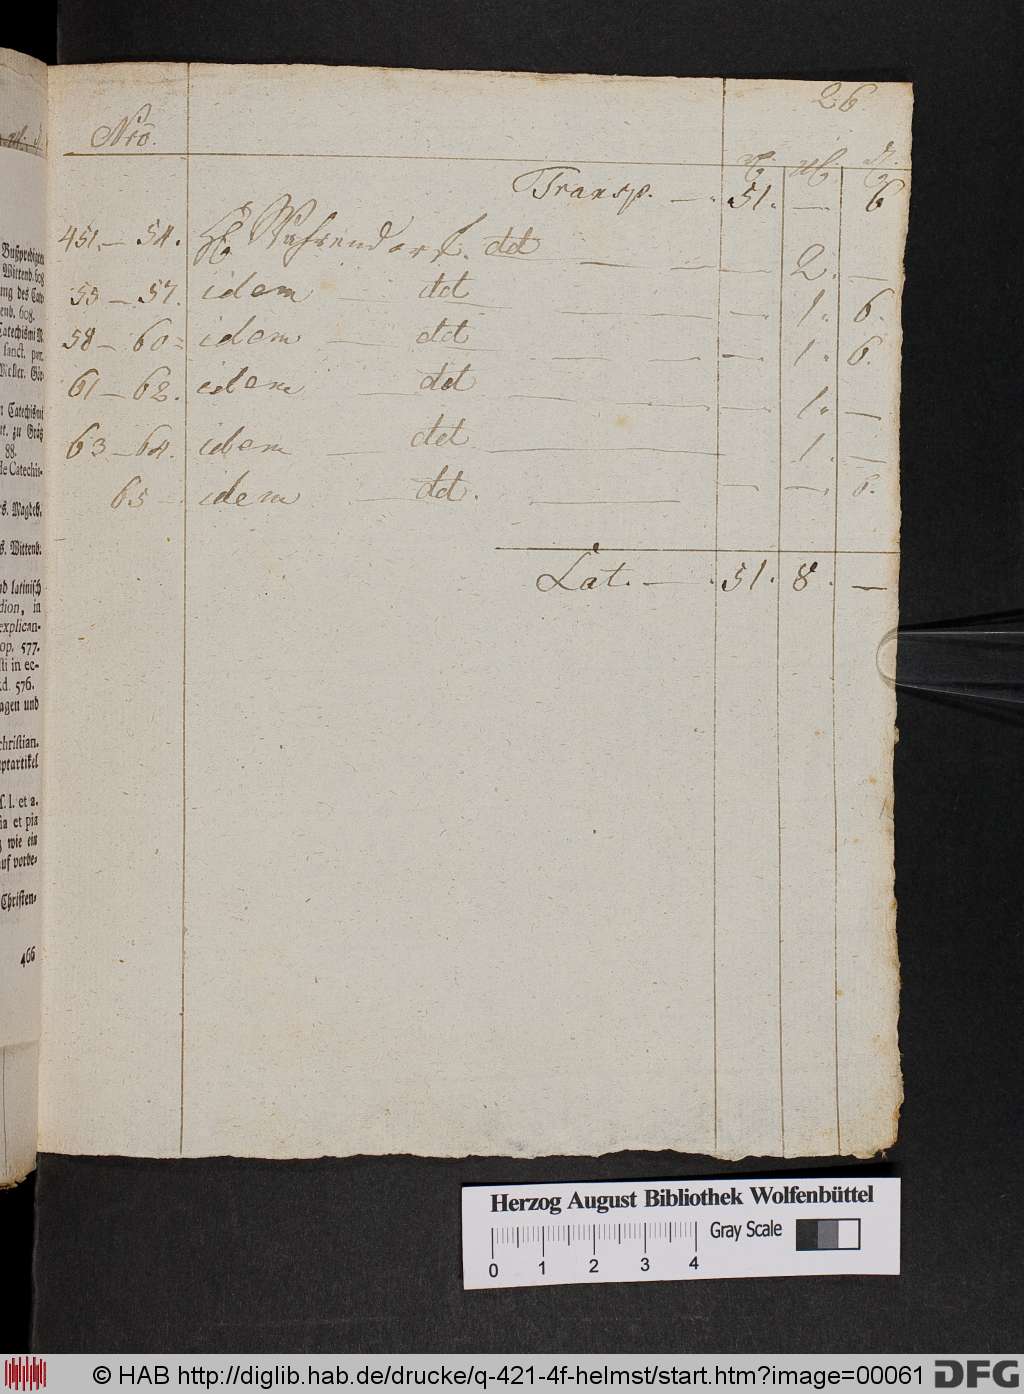 26
Nro.
Transp. — . 51. — 6
451. — 54. Wahrendorf. dt — — — 2. —
55 — 57. idem — dt — — — 1. 6.
58 — 60 = idem — dt — — — 1. 6.
61 — 62. idem — dt — — — 1. —
63 — 64. idem — dt — — 1. —
65 — idem — dt. — — — 6.
Lat. — . 51. 8. —
Bußpredigen
Wittend. 608
ung des Cate
enb. 608.
Catechismi
sanct. per.
n Catechismi
zu Gräz
88.
de Catechis-
s. Magdeb.
s. Wittenb.
nd latinisch
dion, in
explican-
op. 577.
sti in ec-
d. 576.
agen und
christian.
uptartikel
s. l. et a.
ia et pia
wie ein
uf vorbe-
Christen-
466
Herzog August Bibliothek Wolfenbüttel
Gray Scale
0 1 2 3 4
© HAB http://diglib.hab.de/drucke/q-421-4f-helmst/start.htm?image=00061
DFG